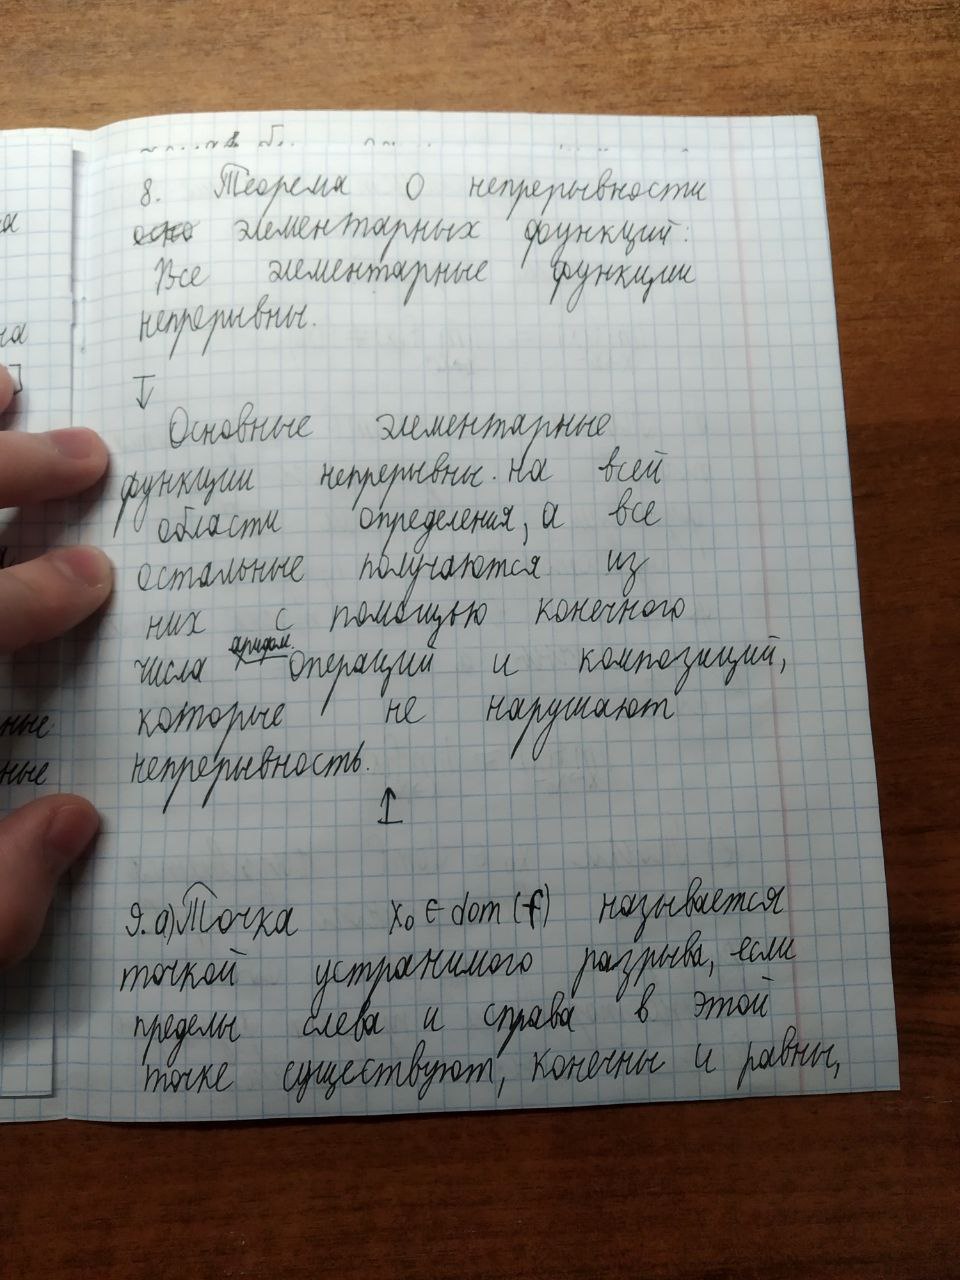 8. Теорема о непрерывности
элементарных функций:
Все элементарные функции
непрерывны.
Основные элементарные
функции непрерывны на всей
области определения, а все
остальные получаются из
них с помощью конечного
арифм.
числа операций и композиций,
которые не нарушают
непрерывность.
9. а) Точка x₀ ∈ dom (f) называется
точкой устранимого разрыва, если
пределы слева и справа в этой
точке существуют, конечны и равны,
ные
ные